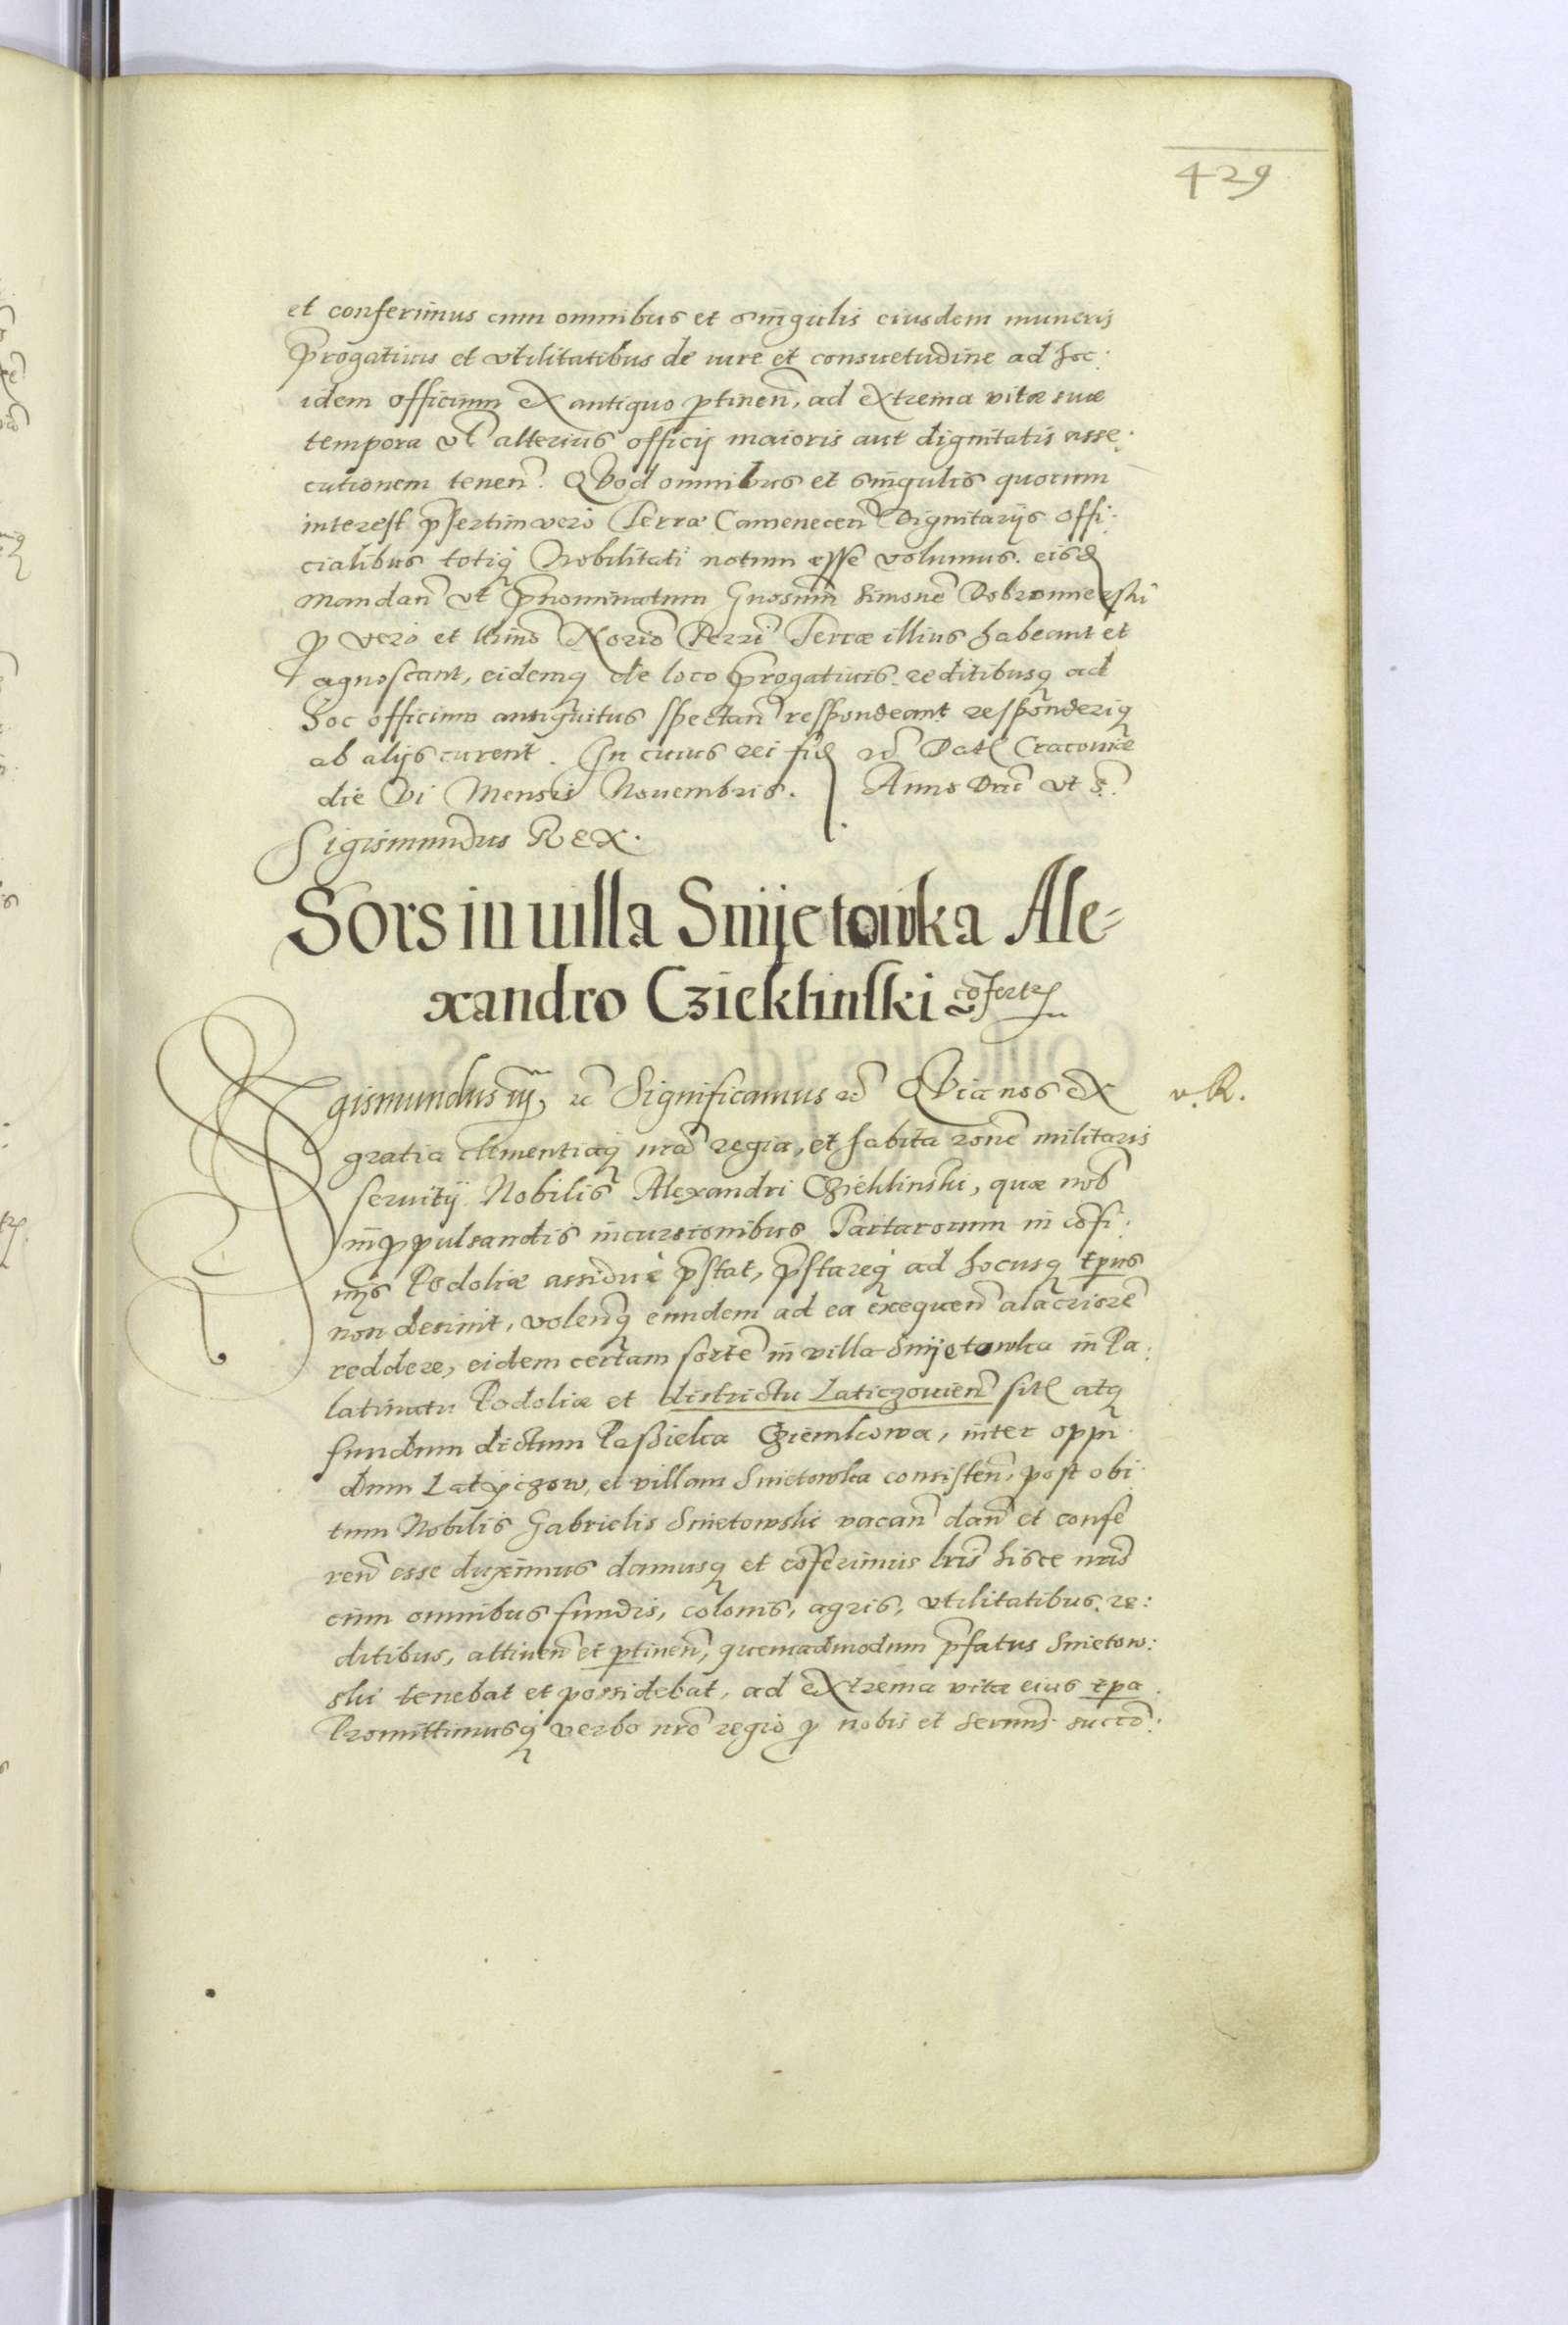 429
et conferimus cum omnibus et singulis eiusdem muneris
prrogativis et vtilitatibus de iure et consuetudine ad hoc:
idem officium ex antiquo ptineñ, ad extrema vitæ suæ
tempora vl alterius officij maioris aut dignitatis asse:
cutionem teneñ. QVod omnibus et singulis quorum
interest pṡertim vero Terræ Cameneceñ Dignitarijs offi:
cialibus totiq Nobilitati notum esse volumus. eisd
mandañ vt pnominatum Gnosum Simone Dobromierski
p vero et Norio Terri Terræ illius habeant et
agnoscant, eidemq de loco prrogativis reditibusq ad
hoc officium antiquitus spectañ respondeant responderiq
ab alijs curent. In cuius rei fid etc Dat Cracouiæ
die Vi Mensis Nouembris. Anno Dni vt s.
Sigismundus Rex.
Sors in uilla Smijetowka Ale=
xandro Czieklinski cõfertr
SIgismundus iij, etc Significamus etc QVia nos ex
v. R.
gratia clementiaq nrã regia, et habita rone militaris
seruitij Nobilis Alexandri Czieklinski, quæ nob
in ppulsandis incursionibus Tartarorum in cõfi:
nijs Podoliæ assiduè pstat, pstareq ad hocusq tpus
non desinit, volenq eundem ad ea exequeñ alacriore
reddere, eidem certam sorte in villa Smijetowka in Pa:
latinatu Podoliæ et districtu Laticzouieñ sit atq
fundum dictum Paßieka Cziemkowa, inter oppi
dum Latyiczow, et villam Smietowka consisteñ, post obi
tum Nobilis Gabrielis Smietowski vacañ dañ et confe
reñ esse duximus damusq et cõferimus lris hisce nris
cum omnibus fundis, colonis, agris, vtilitatibus, re:
ditibus, attineñ et ptineñ, quemadmodum pfatus Smietow:
ski tenebat et possidebat, ad extrema vitæ eius tpa.
Promittimusq verbo nrõ regio p nobis et Sernmis succo: